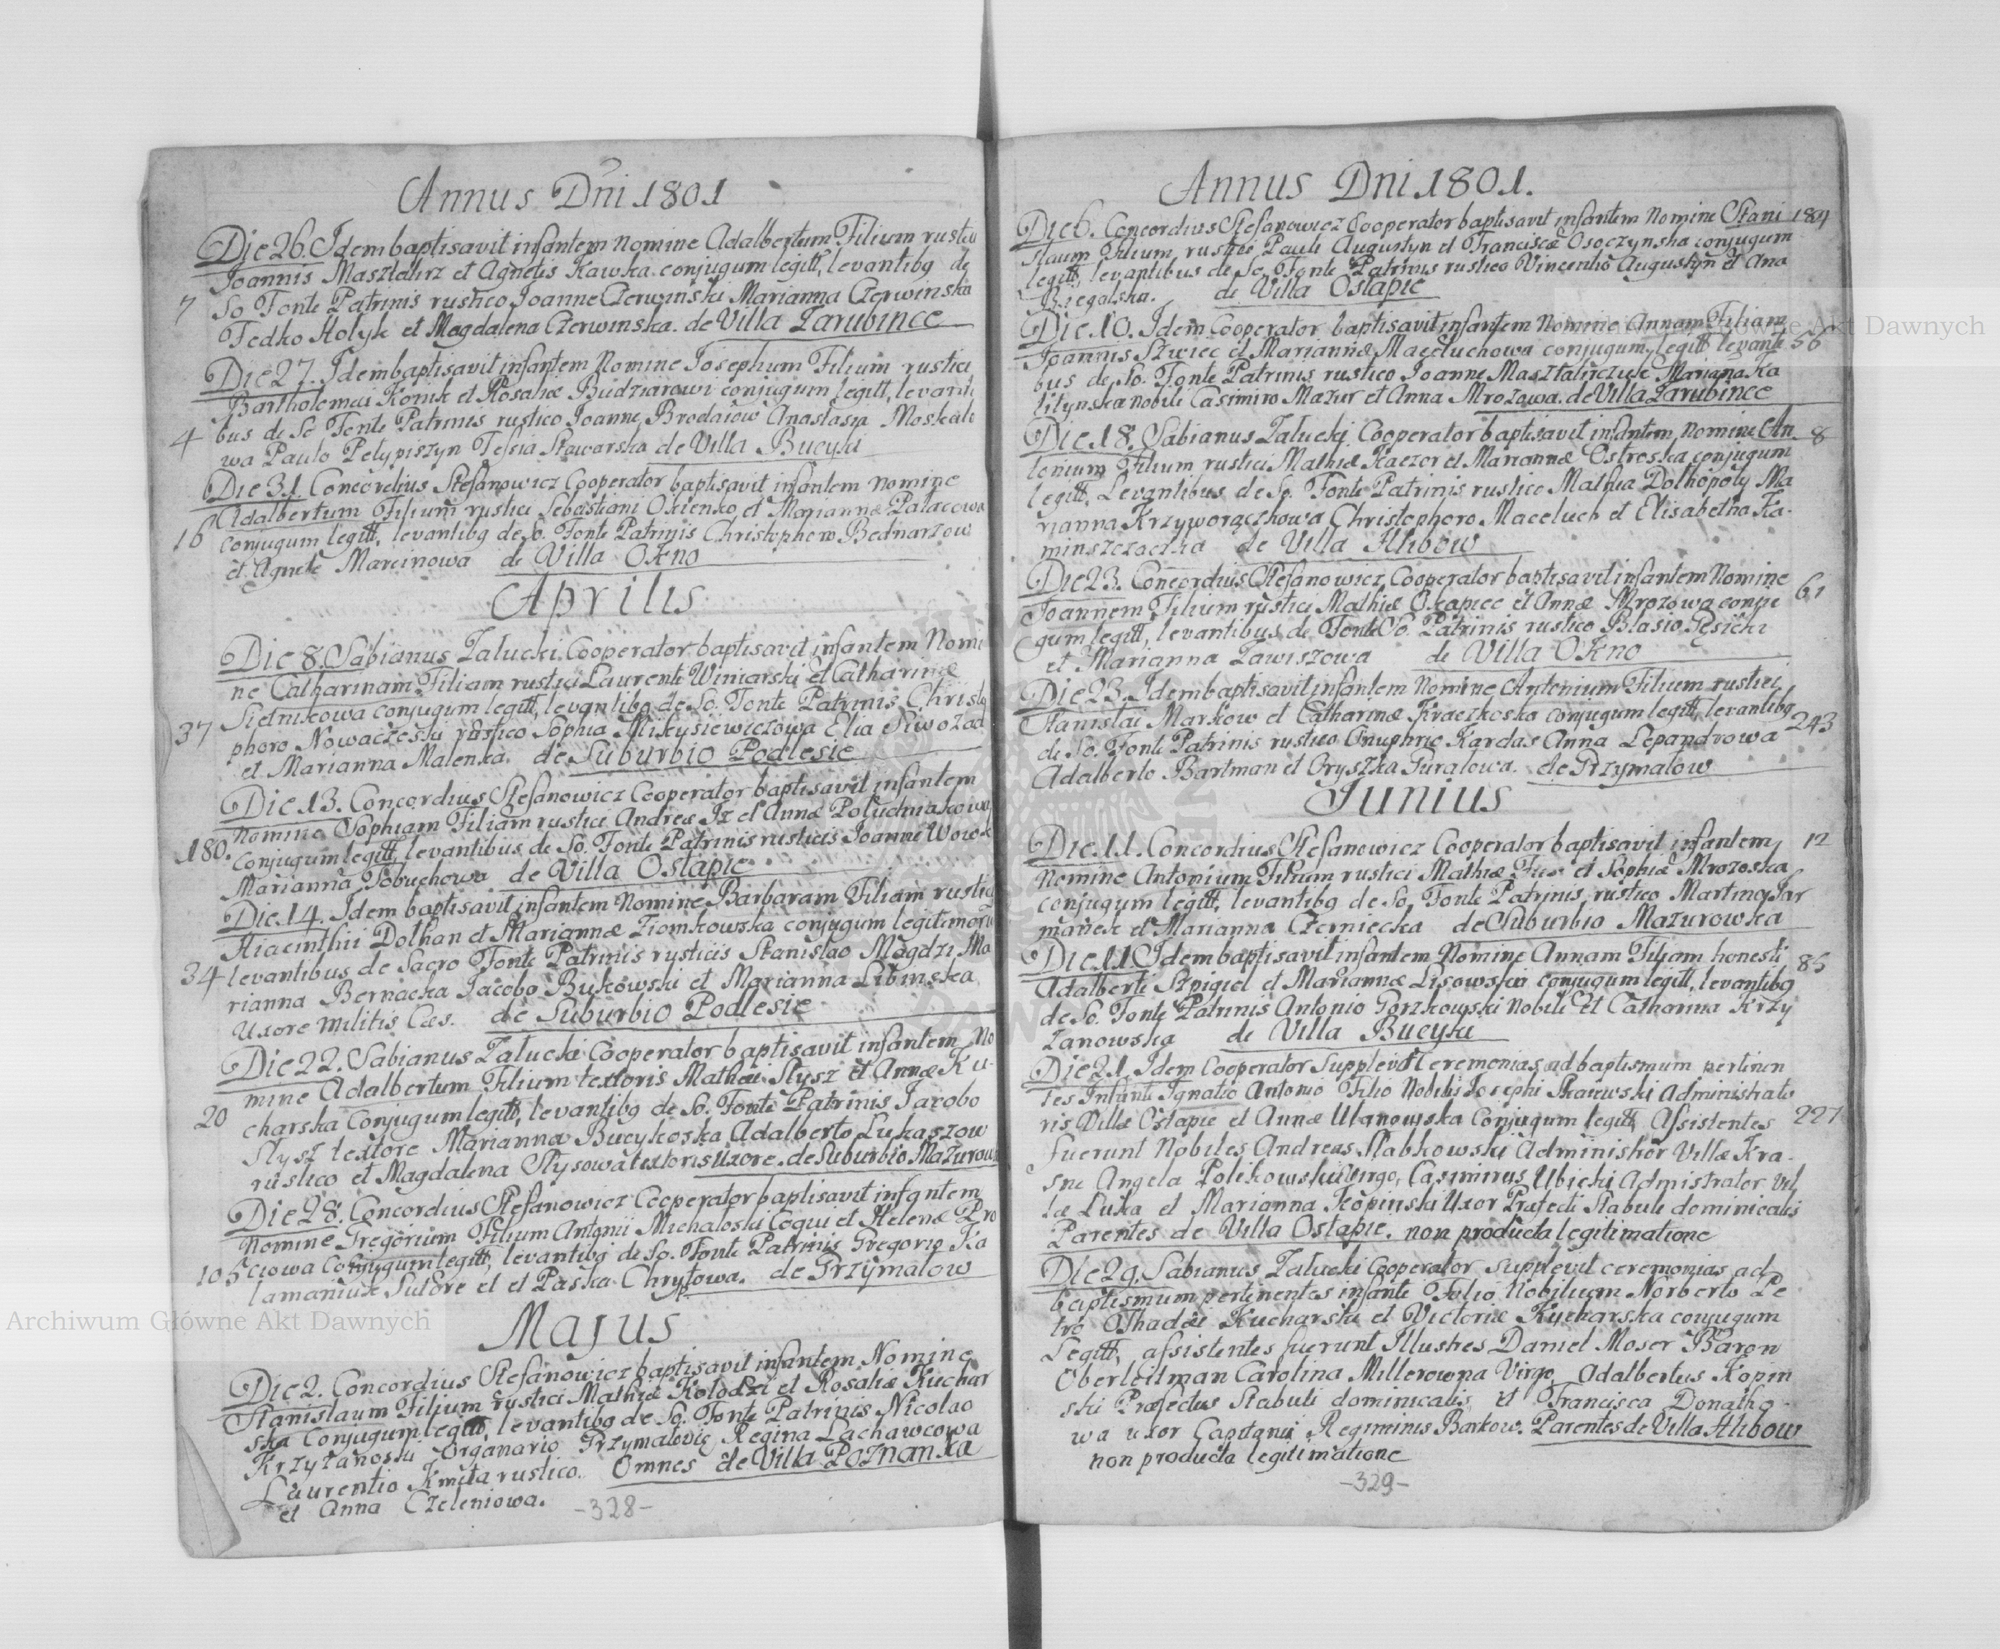 Annus Dni 1801
Die 26. Idem baptisavit infantem nomine Adalbertum Filium rustici
Joannis Masztalirz et Agnetis Kawka conjugum legitt, levantibg de
7 So Fonte Patrinis rustico Joanne Czerwinski Marianna Czerwinska
Fedko Holyk et Magdalena Czerwinska. de Villa Zarubince
Die 27. Idem baptisavit infantem Nomine Josephum Filium rustici
Bartholomei Konik et Rosaliæ Budziarowi conjugum legitt, levanti
4 bus de So Fonte Patrinis rustico Joanne Brodaiow Anastasia Moskalo
wa Paulo Pelypiszyn Stawarska de Villa Bucyki
Die 31. Concordius Stefanowicz Cooperator baptisavit infantem nomine
Adalbertum Filium rustici Sebastiani Okienko et Mariannæ Palacowa
16 conjugum legitt, levantibg de So. Fonte Patrinis Christophoro Bednarzow
et Agnete Marcinowa de Villa Okno
Aprilis
Die 8. Sabianus Zalucki Cooperator baptisavit infantem Nomi
ne Catharinam Filiam rustici Laurenti Winiarski et Catharinæ
Sietnikowa conjugum legitt, levantibg de So. Fonte Patrinis Christo
37 phoro Nowaczeski rustico Sophia Mikysiewiczowa Elia Siwozad
et Marianna Malenka. de Suburbio Podlesie
Die 13. Concordius Stefanowicz Cooperator baptisavit infantem
Nomine Sophiam Filiam rustici Andreæ Iz et Annæ Poludniakowa
180. Conjugum legitt, levantibus de So. Fonte Patrinis rusticis Joanne Wowk
Marianna Sobuchowa de Villa Ostapie
Die 14. Idem baptisavit infantem Nomine Barbaram Filiam rustici
Hiacinthii Dolhan et Mariannæ Ziomkowska conjugum legitimorū
34 levantibus de Sacro Fonte Patrinis rusticis Stanislao Magdzi Ma
rianna Bernacka Jacobo Bukowski et Marianna Libinska
Uxore Militis Cæs. de Suburbio Podlesie
Die 22. Sabianus Zalucki Cooperator baptisavit infantem No
mine Adalbertum Filium textoris Mathæi Slysz et Annæ Ku-
20 charska Conjugum legitt, levantibg de So. Fonte Patrinis Jacobo
Slysz textore Marianna Bucykoska Adalberto Lukaszow
rustico et Magdalena Slysowa textoris uxore. de Suburbio Mazurowk
Die 28. Concordius Stefanowicz Cooperator baptisavit infantem
Nomine Gregorium Filium Antonii Michaloski Coqui et Helenæ Pro
105 ciowa Conjugum legitt, levantibg de So. Fonte Patrinis Gregorio Ka
lamaniuk Sutore et et Paska Chrytowa. de Grzymalow
Majus
Die 2. Concordius Stefanowicz baptisavit infantem Nomine
Stanislaum Filium rustici Mathiæ Kolodzi et Rosaliæ Kuchar
ska Conjugum legitt, levantibg de So. Fonte Patrinis Nicolao
Krzyżanoski Organario Grzymalovie Regina Lachawcowa
Laurentio Kmita rustico. Omnes de Villa Poznanka
et Anna Czeleniowa.
-328-
Annus Dni 1801.
Die 6. Concordius Stefanowicz Cooperator baptisavit infantem Nomine Stani 184
slaum Filium rustici Pauli Augustyn et Franciscæ Osoczynska conjugum
legitt, levantibus de So. Fonte Patrinis rustico Vincentio Augustyn et Ana
Biegalska. de Villa Ostapie
Die 10. Idem Cooperator baptisavit infantem Nomine Annam Filiam
Joannis Szwiec et Mariannæ Maceluchowa conjugum legitt levanti 56
bus de So. Fonte Patrinis rustico Joanne Masztalirczuk Mariana Ka
litynska nobili Casimiro Mazur et Anna Mrozowa. de Villa Zarubince
Die 18. Sabianus Zalucki Cooperator baptisavit infantem nomine An- 8
tonium Filium rustici Mathiæ Kaczor et Mariannæ Ostroska conjugum
legitt, Levantibus de So. Fonte Patrinis rustico Mathia Dolhopoly Ma
rianna Krzyworączkowa Christophoro Maceluch et Elisabetha Ka-
minszczaczka de Villa Hlibow
Die 23. Concordius Stefanowicz Cooperator baptisavit infantem Nomine
Joannem Filium rustici Mathiæ Okapiec et Annæ Mrozowa conju 61
gum legitt, levantibus de Fonte So. Patrinis rustico Blasio Gesicki
et Marianna Zawiszowa de Villa Okno
Die 23. Idem baptisavit infantem Nomine Antonium Filium rustici
Stanislai Markow et Catharinæ Kraczkoska conjugum legitt, levantibg
de So. Fonte Patrinis rustico Onuphrio Kardas Anna Lepandrowa 243
Adalberto Bartman et Oryszka Guralowa. de Grzymalow
Junius
Die 11. Concordius Stefanowicz Cooperator baptisavit infantem 12
Nomine Antonium Filium rustici Mathiæ et Sophiæ Mrozoska
conjugum legitt, levantibg de So. Fonte Patrinis rustico Martino Jar
manek et Marianna Czerniecka de Suburbio Mazurowka
Die 11. Idem baptisavit infantem Nomine Annam Filiam honesti 85
Adalberti Szpigiel et Mariannæ Lisowskia conjugum legitt, levantibg
de So. Fonte Patrinis Antonio Gorzkowski Nobili et Catharina Krzy
zanowska de Villa Bucyki
Die 21. Idem Cooperator Supplevit Ceremonias ad baptismum pertinen
tes Infanti Ignatio Antonio Filio Nobilis Josephi Skarewski Administrato
ris Villæ Ostapie et Annæ Ulanowska Conjugum legitt, Assistentes 227
fuerunt Nobiles Andreas Slabkowski Administror Villæ Kra-
sne Angela Polikowski Virgo, Casimirus Ubicki Admistrator Vil
læ Luka et Marianna Kopinski Uxor Præfecti Stabuli dominicalis
Parentes de Villa Ostapie. non producta legitimatione
Die 29. Sabianus Zalucki Cooperator supplevit ceremonias ad
baptismum pertinentes infanti Filio Nobilium Norberto Pe
tro Thadæi Kucharski et Victoriæ Kucharska conjugum
Legitt, assistentes fuerunt Illustres Daniel Moser Baron
Oberleitman Carolina Millerowna Virgo, Adalbertus Kopin
ski Præfectus Stabuli dominicalis et Francisca Donatho-
wa uxor Capitanii Regiminis Barkow. Parentes de Villa Hlibow
non producta legitimatione
-329-
Archiwum Główne Akt Dawnych
Główne Akt Dawnych